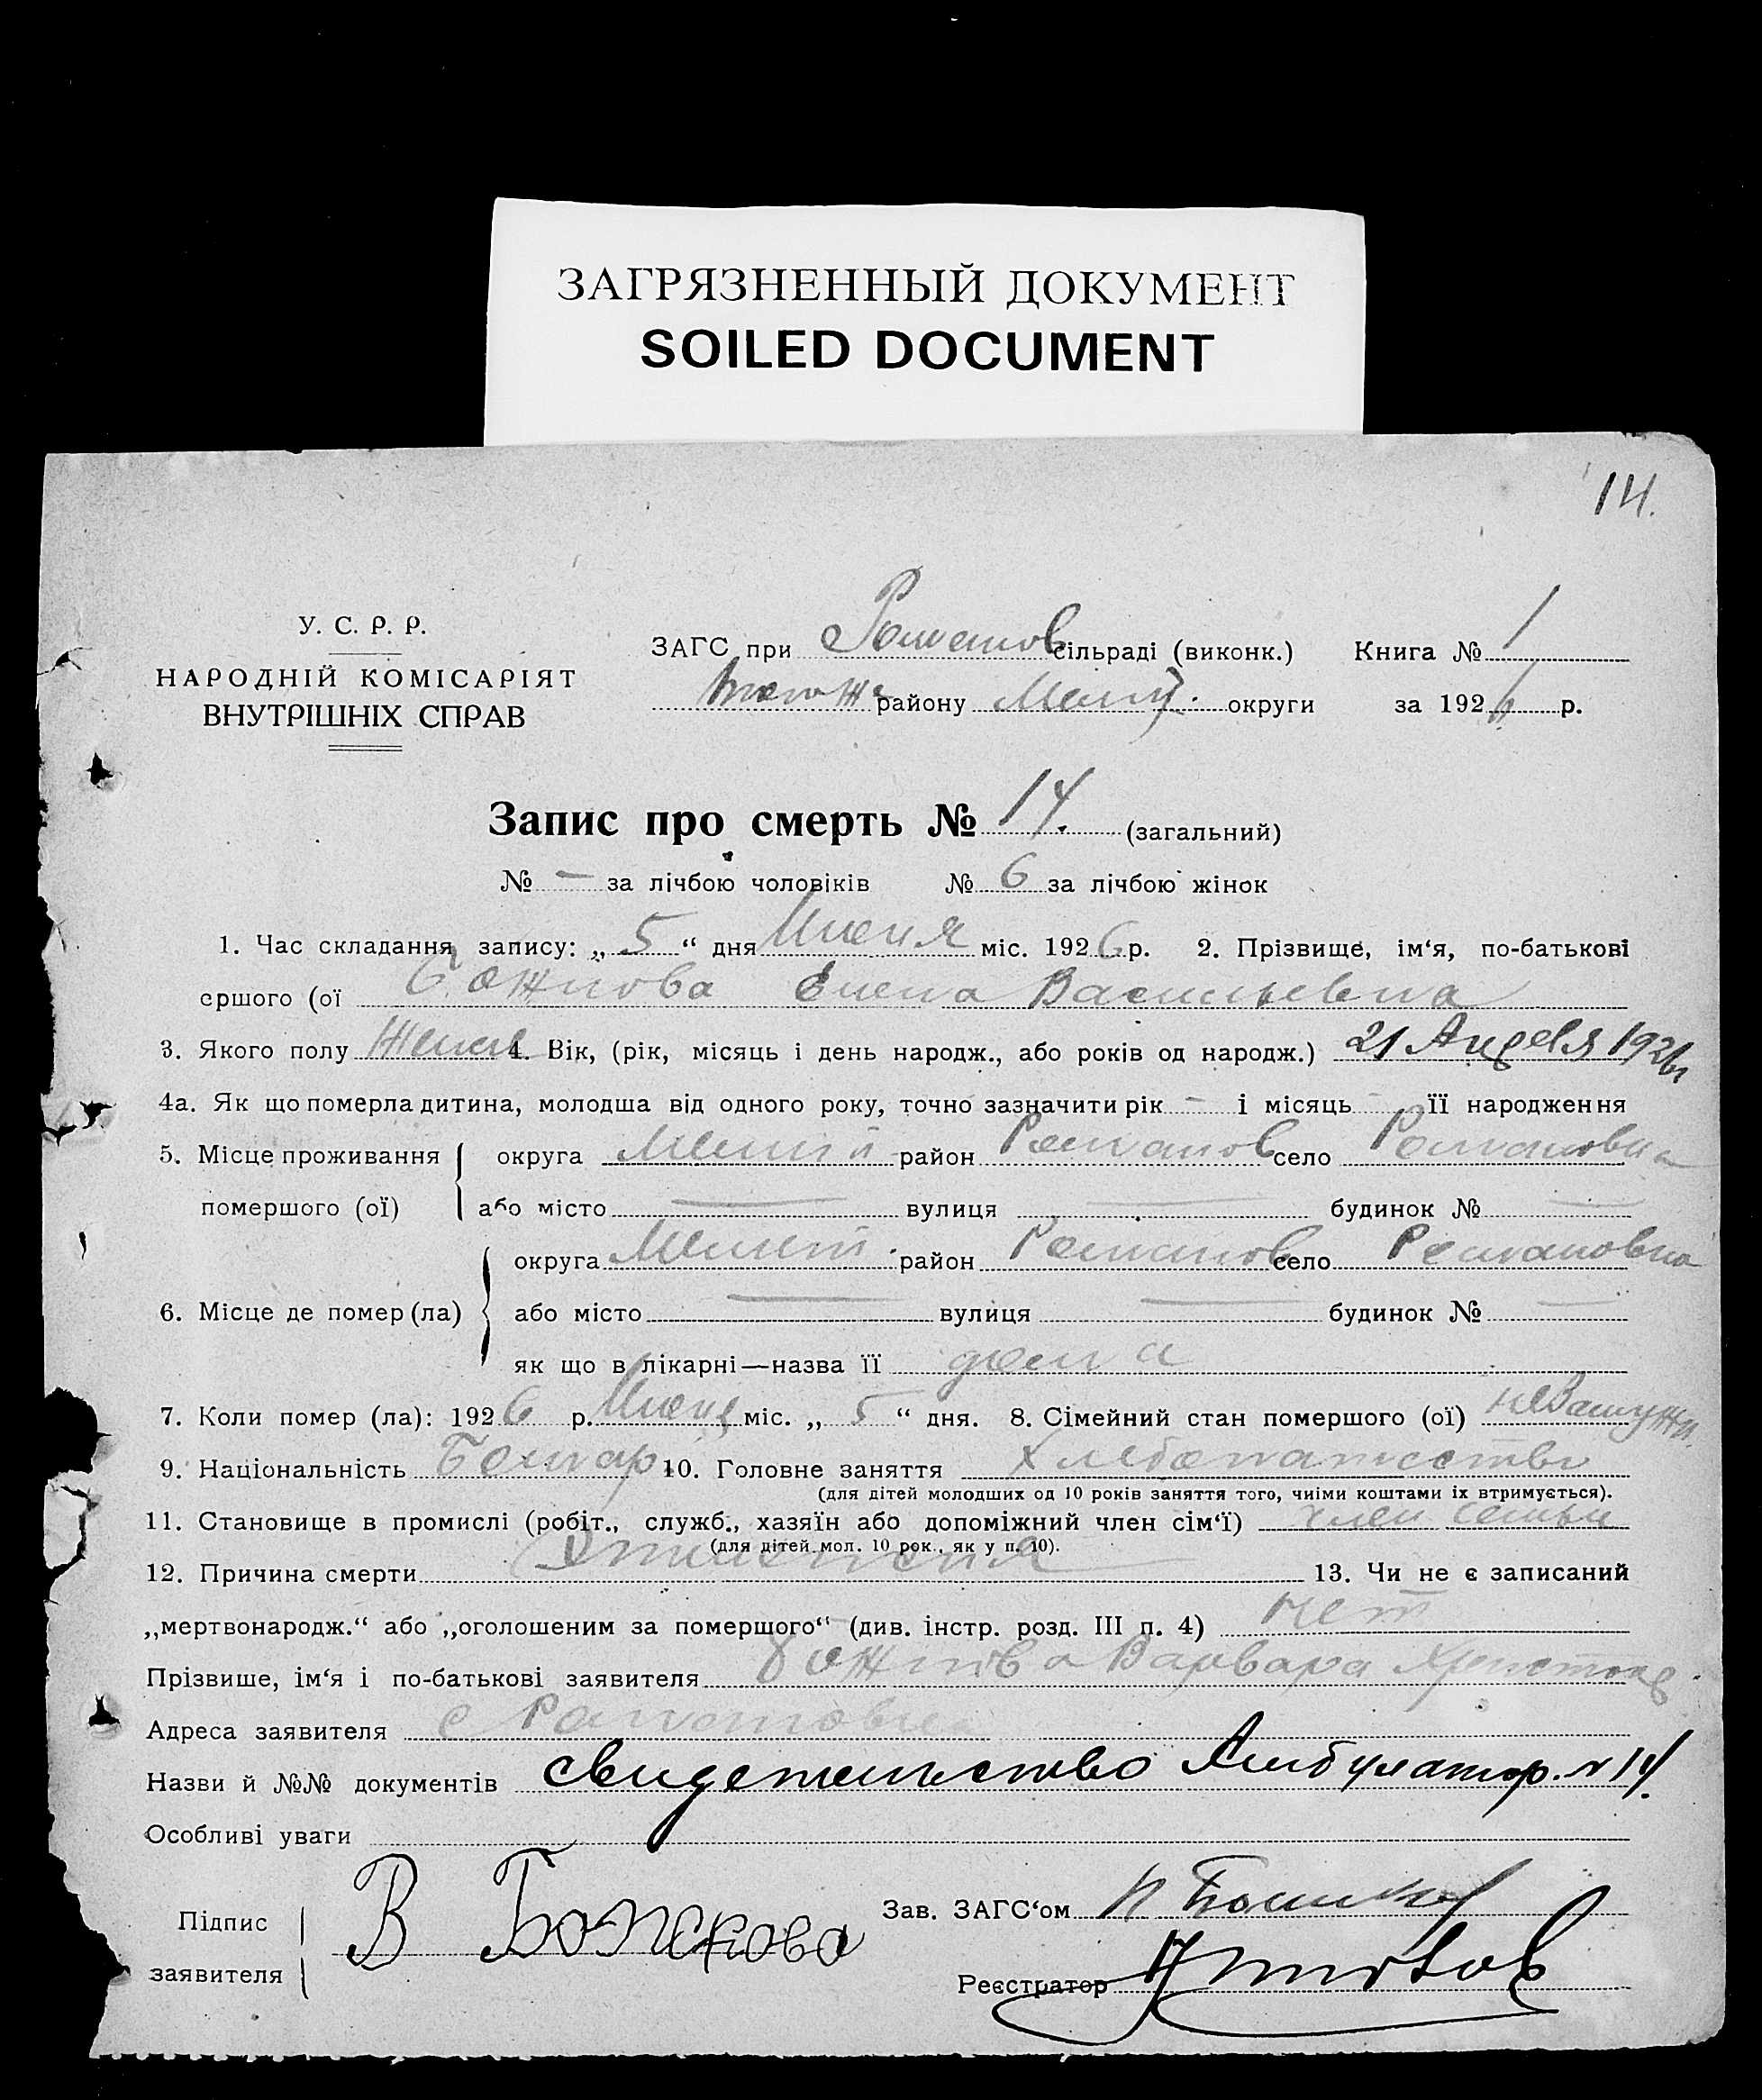 ЗАГРЯЗНЕННЫЙ ДОКУМЕНТ
SOILED DOCUMENT
14.
У. С. Р. Р.
НАРОДНІЙ КОМІСАРІЯТ
ВНУТРІШНІХ СПРАВ
ЗАГС при Романов сільраді (виконк.) Книга № 1
району округи за 1926 р.
Запис про смерть № 14. (загальний)
№ — за лічбою чоловіків № 6 за лічбою жінок
1. Час складання запису: „ 5 “ дня Июня міс. 1926 р. 2. Прізвище, ім‘я, по-батькові
ершого (ої Божкова Елена Васильевна
3. Якого полу Женск 4. Вік, (рік, місяць і день народж., або років од народж.) 21 Апреля 192
4а. Як що померла дитина, молодша від одного року, точно зазначити рік — і місяць — її народження
5. Місце проживання округа район Романов село Романовка
помершого (ої) або місто — вулиця — будинок № —
округа Мелит. район Романов село Романовка
6. Місце де помер (ла) або місто — вулиця — будинок № —
як що в лікарні—назва її дома
7. Коли помер (ла): 1926 р. Июня міс. „ 5 “ дня. 8. Сімейний стан помершого (ої)
9. Національність Болгар 10. Головне заняття Хлебопашество
(для дітей молодших од 10 років заняття того, чиїми коштами їх втримується).
11. Становище в промислі (робіт., служб., хазяїн або допоміжний член сім‘ї) член семьи
(для дітей мол. 10 рок., як у п. 10).
12. Причина смерти 13. Чи не є записаний
„мертвонародж.“ або „оголошеним за помершого“ (див. інстр. розд. III п. 4) нет
Прізвише, ім‘я і по-батькові заявителя Божкова Варвара Христофор.
Адреса заявителя с Романовка
Назви й №№ документів свидетельство Амбулатор. № 14.
Особливі уваги
Підпис заявителя В Божкова
Зав. ЗАГС‘ом
Реєстратор